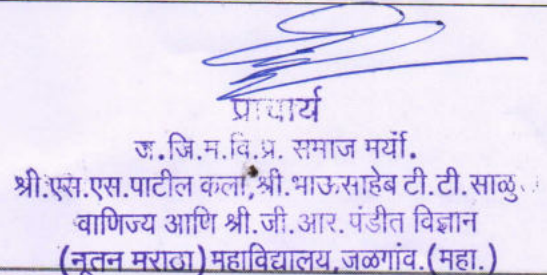 प्राचार्य
ज.जि.म.वि.प्र. समाज मर्या.
श्री.एस.एस.पाटील कला,श्री.भाऊसाहेब टी.टी.साळु
वाणिज्य आणि श्री.जी.आर.पंडीत विज्ञान
(नूतन मराठा) महाविद्यालय,जळगांव.(महा.)